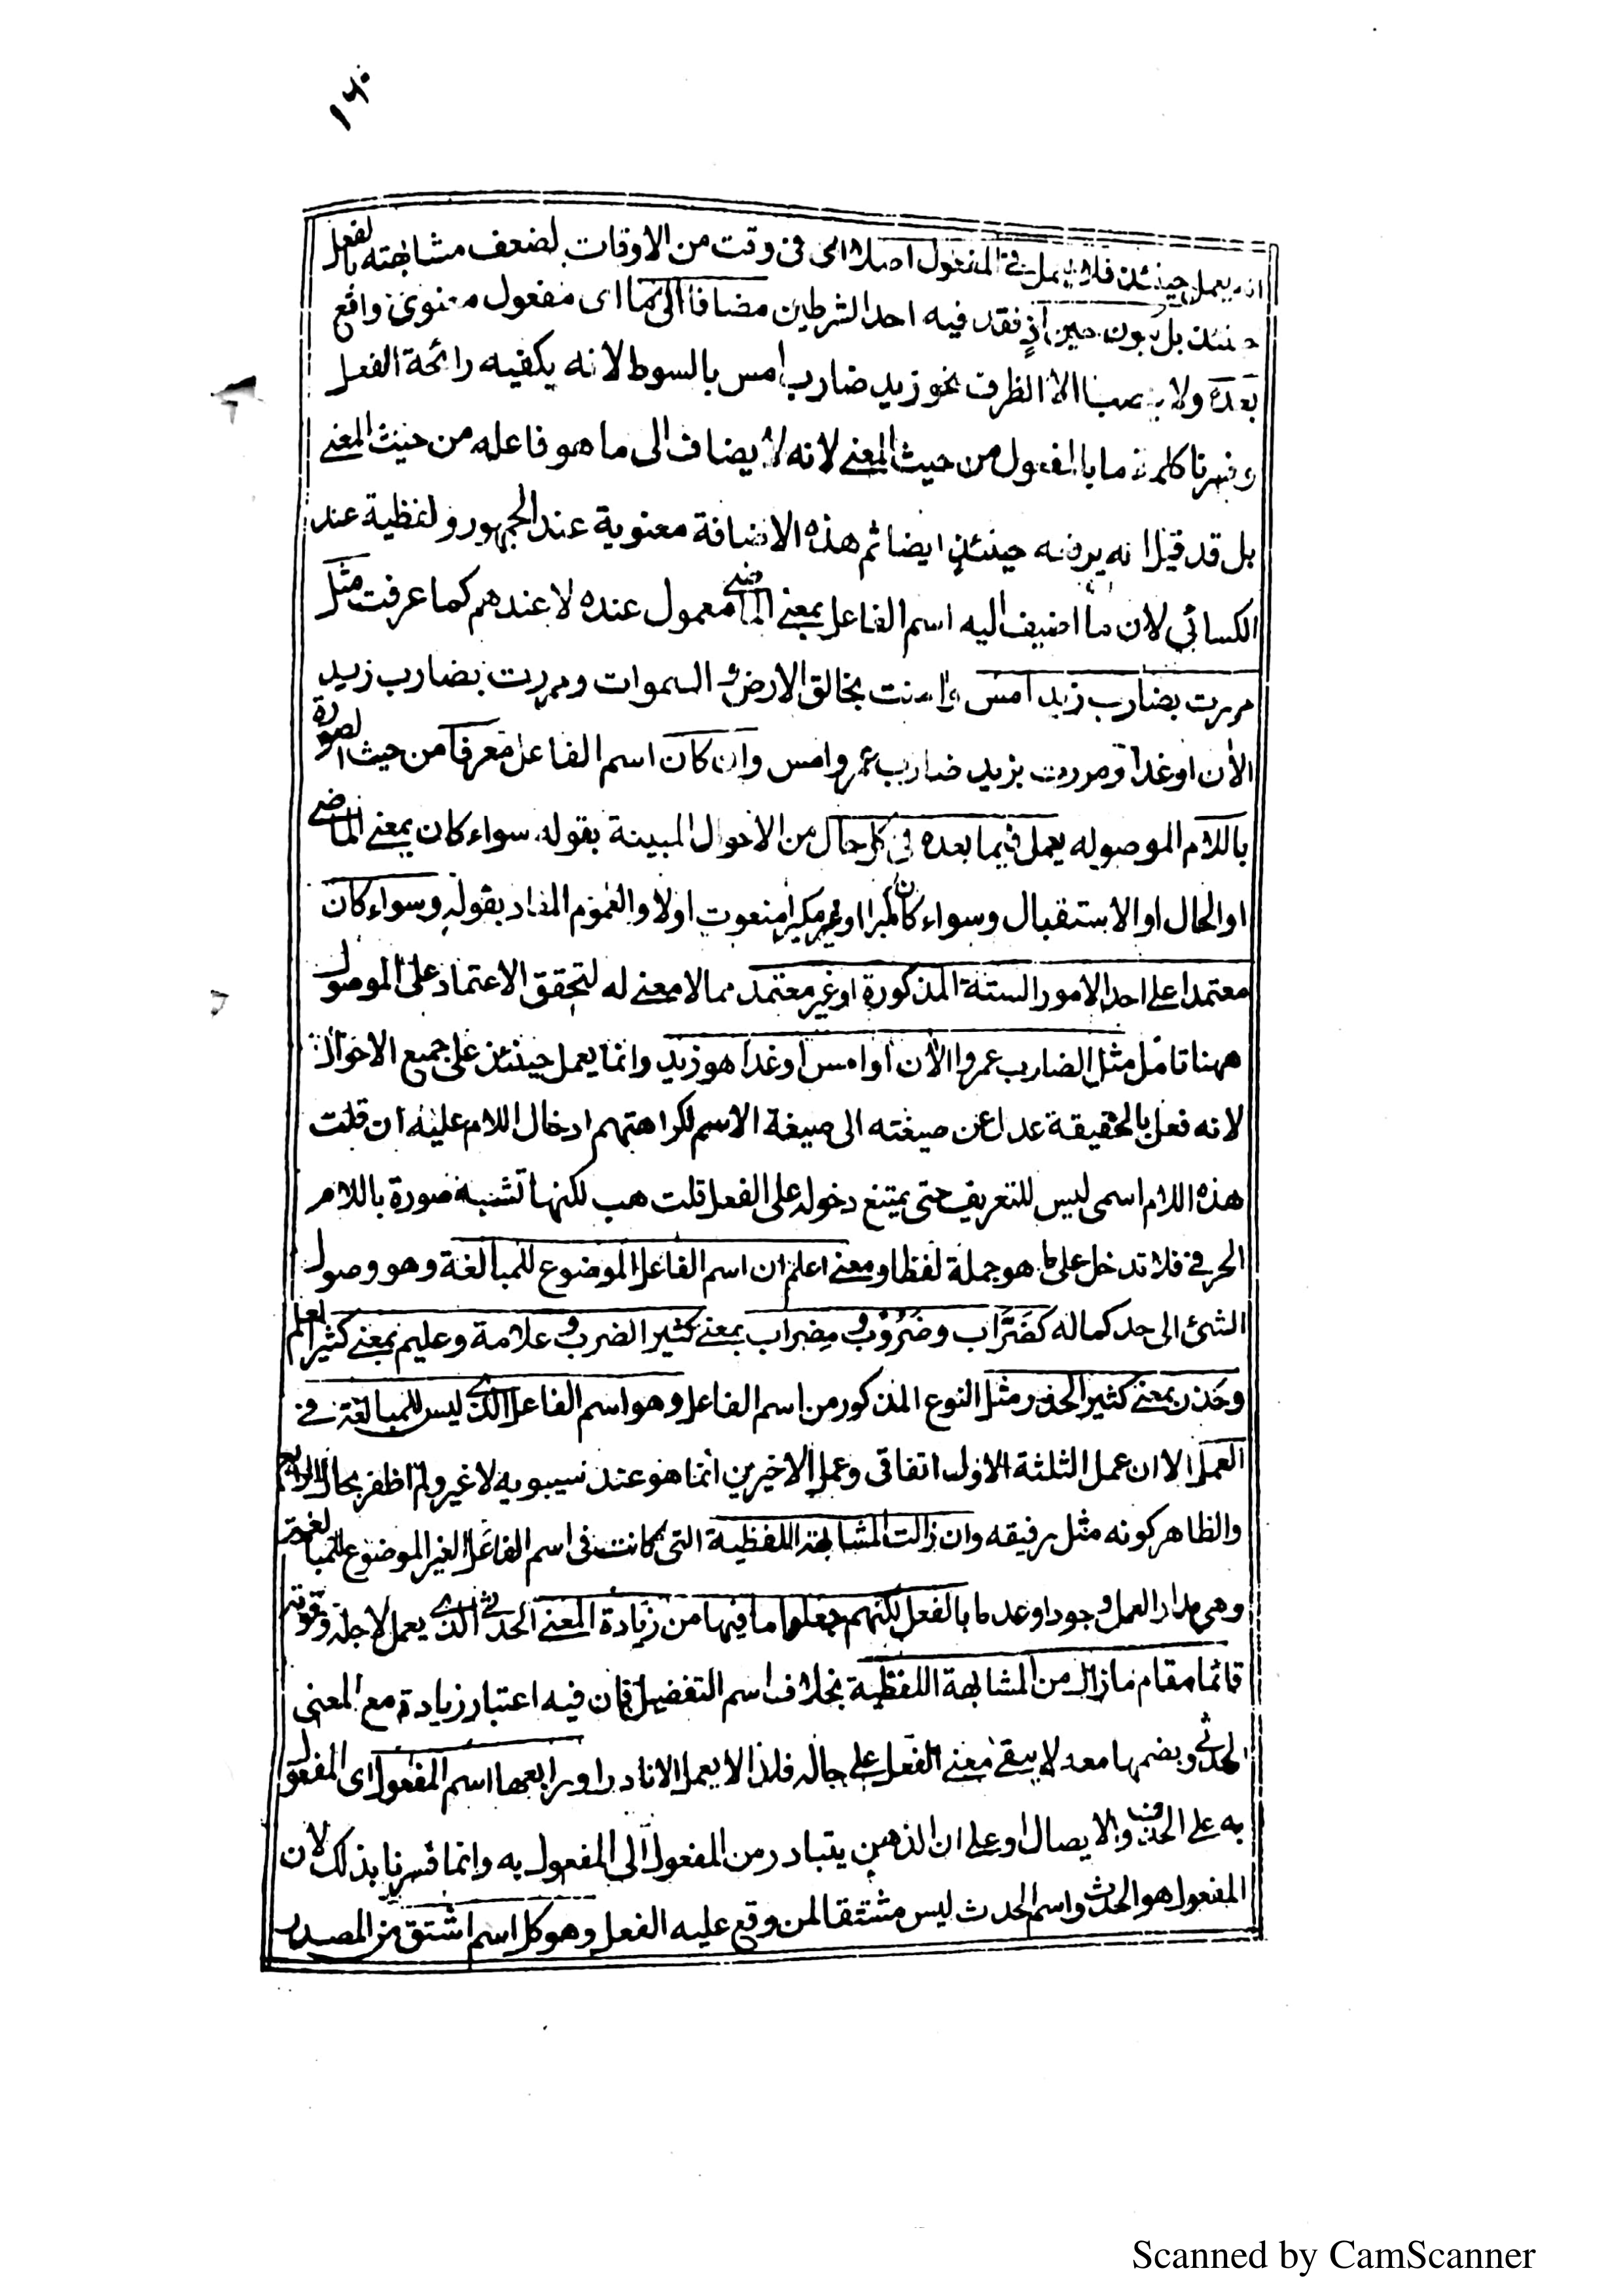 ١٦٠
يعمل حينئذ فلا يعمل فى المفعول اصلا اى فى وقت من الاوقات لضعف مشابهته بالفعل
بل يكون حينئذ فقد فيه احد الشرطين مضافا الى ما اى مفعول معنوى واقع
بعده ولا ينصب الا الظرف نحو زيد ضارب امس بالسوط لانه يكفيه رائحة الفعل
وفسرنا كلمة ما بالمفعول من حيث المعنى لانه لا يضاف الى ما هو فاعله من حيث المعنى
بل قد قيل انه يرفعه حينئذ ايضا ثم هذه الاضافة معنوية عند الجمهور ولفظية عند
الكسائي لان ما اضيف اليه اسم الفاعل بمعنى الماضى معمول عنده لا عندهم كما عرفت مثل
مررت بضارب زيد امس وامنت بخالق الارض والسموات ومررت بضارب زيد
الأن او غدا ومررت بزيد ضارب عمرو امس وان كان اسم الفاعل معرفا من حيث الصورة
باللام الموصوله يعمل فيما بعده فى كل حال من الاحوال المبينة بقوله سواء كان بمعنى الماضى
او الحال او الاستقبال وسواء كان مكبرا او غير مكبر منعوت اولا والعموم المفاد بقوله وسواء كان
معتمدا على احد الامور الستة المذكورة او غير معتمد مما لا معنى له لتحقق الاعتماد على الموصول
ههنا تامل مثل الضارب عمروا الأن او امس او غدا هو زيد وانما يعمل حينئذ على جميع الاحوال
لانه فعل بالحقيقة عدل عن صيغته الى صيغة الاسم لكراهتهم ادخال اللام عليه ان قلت
هذه اللام اسمى ليس للتعريف حتى يمتنع دخوله على الفعل قلت هب لكنها تشبه صورة باللام
الحرفى فلا تدخل على ما هو جملة لفظا ومعنى اعلم ان اسم الفاعل الموضوع للمبالغة وهو وصول
الشئ الى حد كماله كضَرَّاب وضَرُوْب ومِضراب بمعنى كثير الضرب وعلامة وعليم بمعنى كثير العلم
وحَذِر بمعنى كثير الحذر مثل النوع المذكور من اسم الفاعل وهو اسم الفاعل الذى ليس للمبالغة فى
العمل الا ان عمل الثلثة الاول اتفاقى وعمل الاخيرين انما هو عند سيبويه لا غير ولم اظفر بحال الرابع
والظاهر كونه مثل رفيقه وان زالت المشابهة اللفظية التى كانت فى اسم الفاعل الغير الموضوع للمبالغة
وهى مدار العمل وجودا وعدما بالفعل لكنهم جعلوا ما فيها من زيادة المعنى الحدثى الذى يعمل لاجله وقوته
قائما مقام ما زال من المشابهة اللفظية بخلاف اسم التفضيل فان فيه اعتبار زيادة مع المعنى
الحدثى وبضمها معه لا يبقى معنى الفعل على حاله فلذا لا يعمل الا نادرا ورابعها اسم المفعول اى المفعول
به على الحذف والايصال او على ان الذهن يتبادر من المفعول الى المفعول به وانما فسرنا بذلك لان
المفعول هو الحدث واسم الحدث ليس مشتقا لمن وقع عليه الفعل وهو كل اسم اشتق من المصدر
Scanned by CamScanner